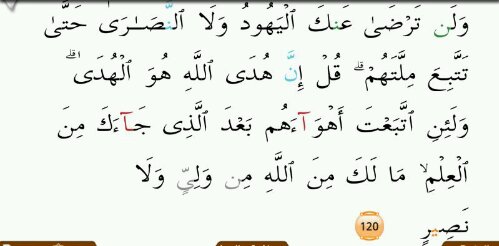 وَلَن تَرْضَىٰ عَنكَ ٱلْيَهُودُ وَلَا ٱلنَّصَـٰرَىٰ حَتَّىٰ
تَتَّبِعَ مِلَّتَهُمْ ۗ قُلْ إِنَّ هُدَى ٱللَّهِ هُوَ ٱلْهُدَىٰ ۗ
وَلَئِنِ ٱتَّبَعْتَ أَهْوَآءَهُم بَعْدَ ٱلَّذِى جَآءَكَ مِنَ
ٱلْعِلْمِ ۙ مَا لَكَ مِنَ ٱللَّهِ مِن وَلِىٍّ وَلَا
نَصِيرٍ 120